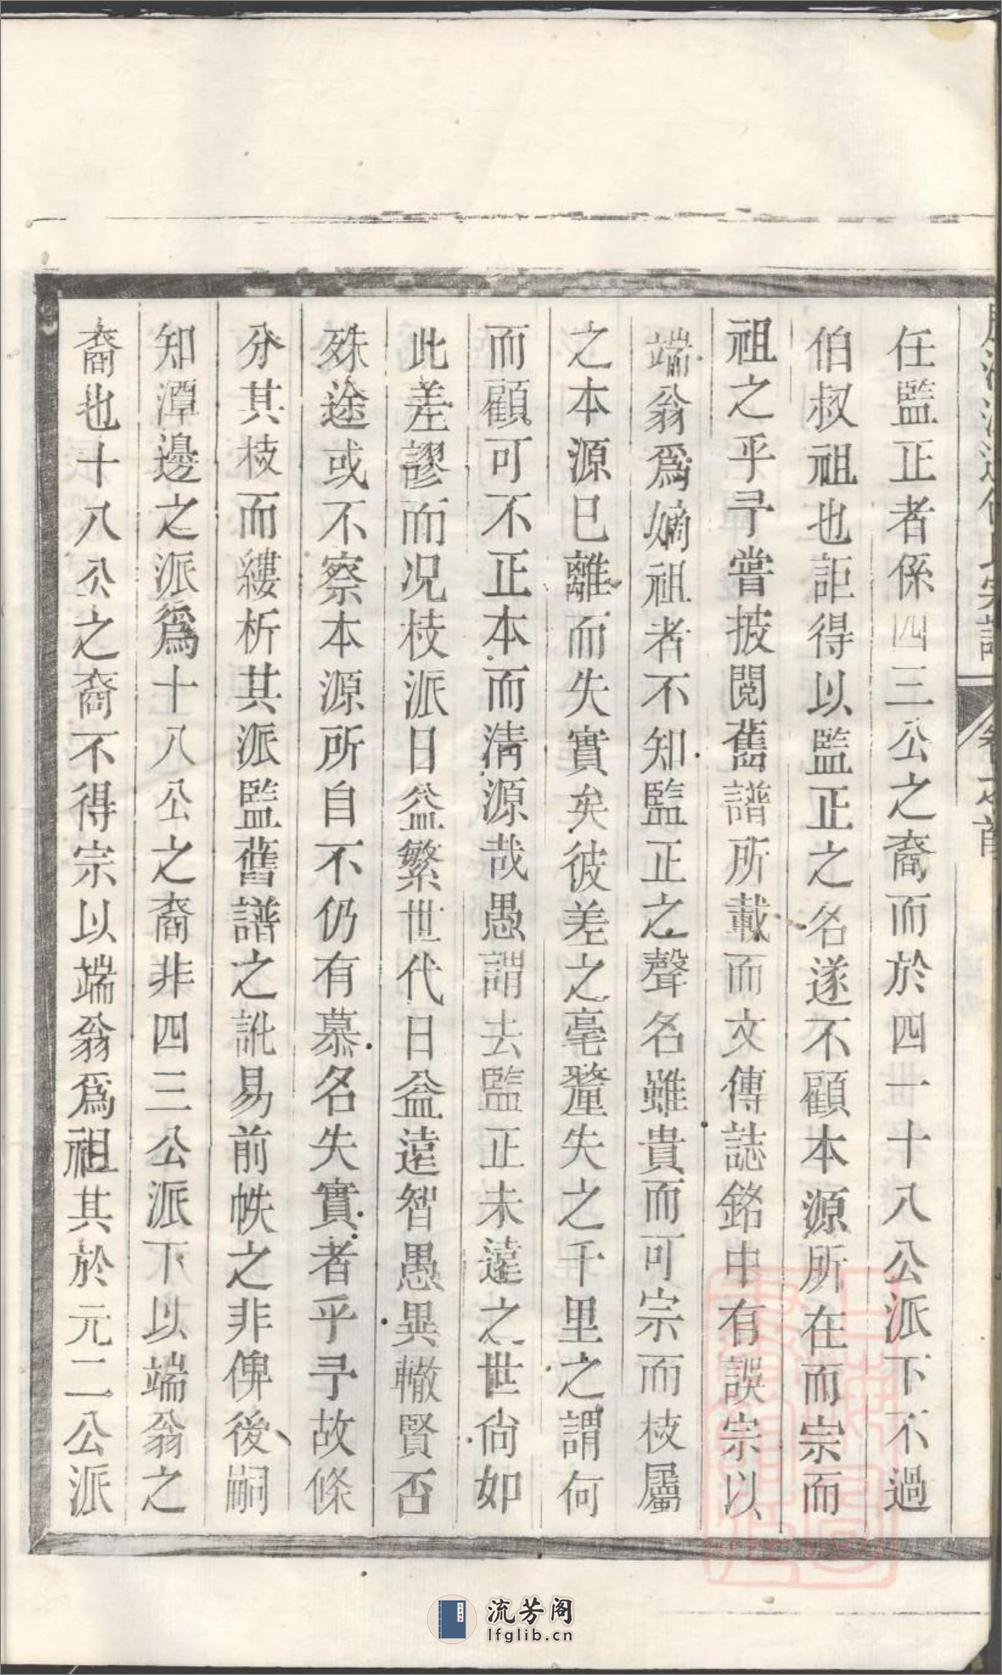 任監正者係四三公之裔而於四一十八公派下不過
伯叔祖也詎得以監正之名遂不顧本源所在而宗而
祖之乎予嘗披閱舊譜所載而文傳誌銘中有誤宗以
端翁爲嫡祖者不知監正之聲名雖貴而可宗而枝屬
之本源已離而失實矣彼差之毫釐失之千里之謂何
而顧可不正本而清源哉愚謂去監正未遠之世尙如
此差謬而况枝派日益繁世代日益遠智愚異轍賢否
殊途或不察本源所自不仍有慕名失實者乎予故條
分其枝而縷析其派監舊譜之訛易前帙之非俾後嗣
知潭邊之派爲十八公之裔非四三公派下以端翁之
裔也十八公之裔不得宗以端翁爲祖其於元二公派
流芳阁
lfglib.cn